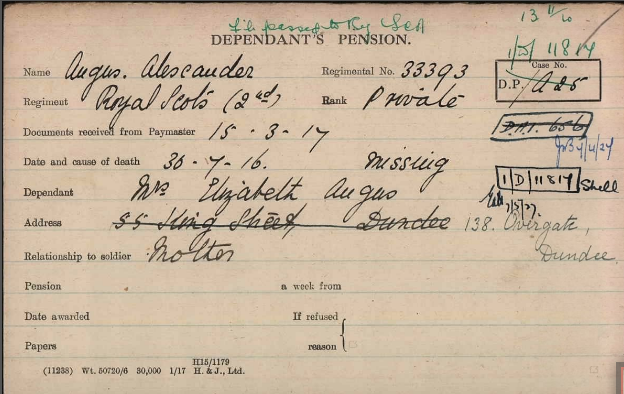 File passed to By Sec A
13 11/20
DEPENDANT'S PENSION.
1/D/ 11817
Name Angus. Alexander Regimental No. 33393
Case No.
D.P./A25
Regiment Royal Scots (2nd) Rank Private
Documents received from Paymaster 15 . 3 . 17
D.P.1. 656
4/4/27
Date and cause of death 30 - 7 - 16. Missing
1/D/11817 Shell
Dependant Mrs Elizabeth Angus
7/5/27.
Address 55 King Street Dundee 138. Overgate,
Dundee.
Relationship to soldier Mother
Pension a week from
Date awarded If refused
Papers reason
H15/1179
(11238) Wt. 50720/6 30,000 1/17 H. & J., Ltd.